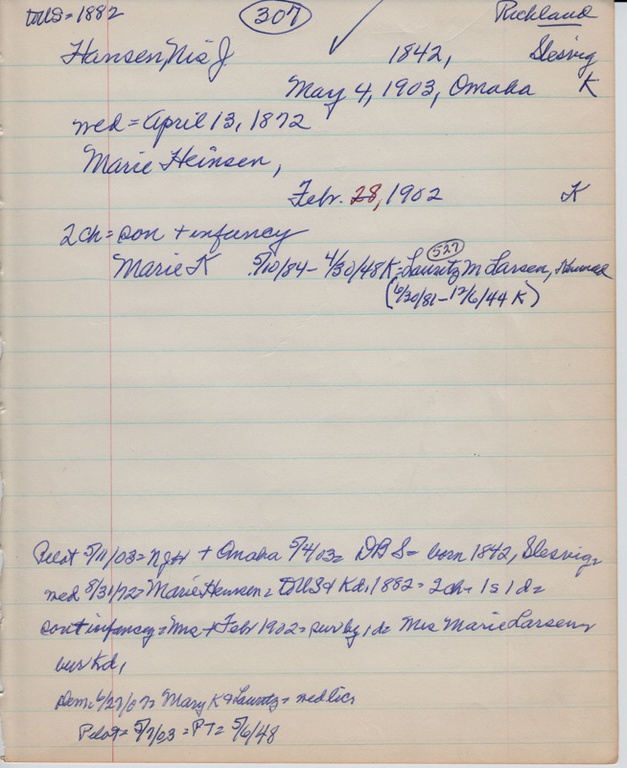 to US = 1882 307 Richland
Hansen, Nis J. 1842, Slesvig
May 4, 1903, Omaha K
wed = April 13, 1872
Marie Heinsen,
Febr. 28, 1902 K
2 ch = son + infancy
Marie K 5/10/84 - 4/30/48 K = Lauritz M Larsen, 527
(6/30/81 - 12/6/44 K)
Pilot 5/11/03 = NJH + Omaha 5/4/03 = DBS = born 1842, Slesvig =
wed 8/31/72 = Marie Hensen = to US + Kd, 1882 = 2 ch = 1 s 1 d =
son + infancy = Mrs + Febr 1902 = sur by 1 d = Mrs Marie Larsen =
bur Kd,
Dem = 6/27/07 = Mary K & Lauritz = wed lics
Pilot = 5/7/03 = PT = 5/6/48